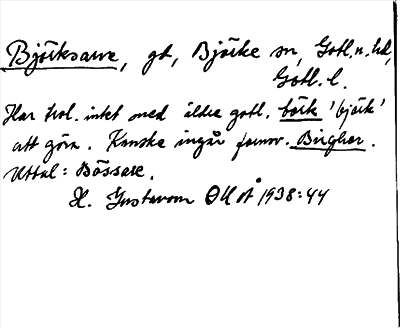 Björksarve, gd, Björke sn, Gotl. n. hd,
Gotl. l.
Har trol. intet med äldre gotl. börk 'björk'
att göra. Kanske ingår fornv. Birghar.
Uttal: Bössare.
H. Gustavson OUÅ 1938:44